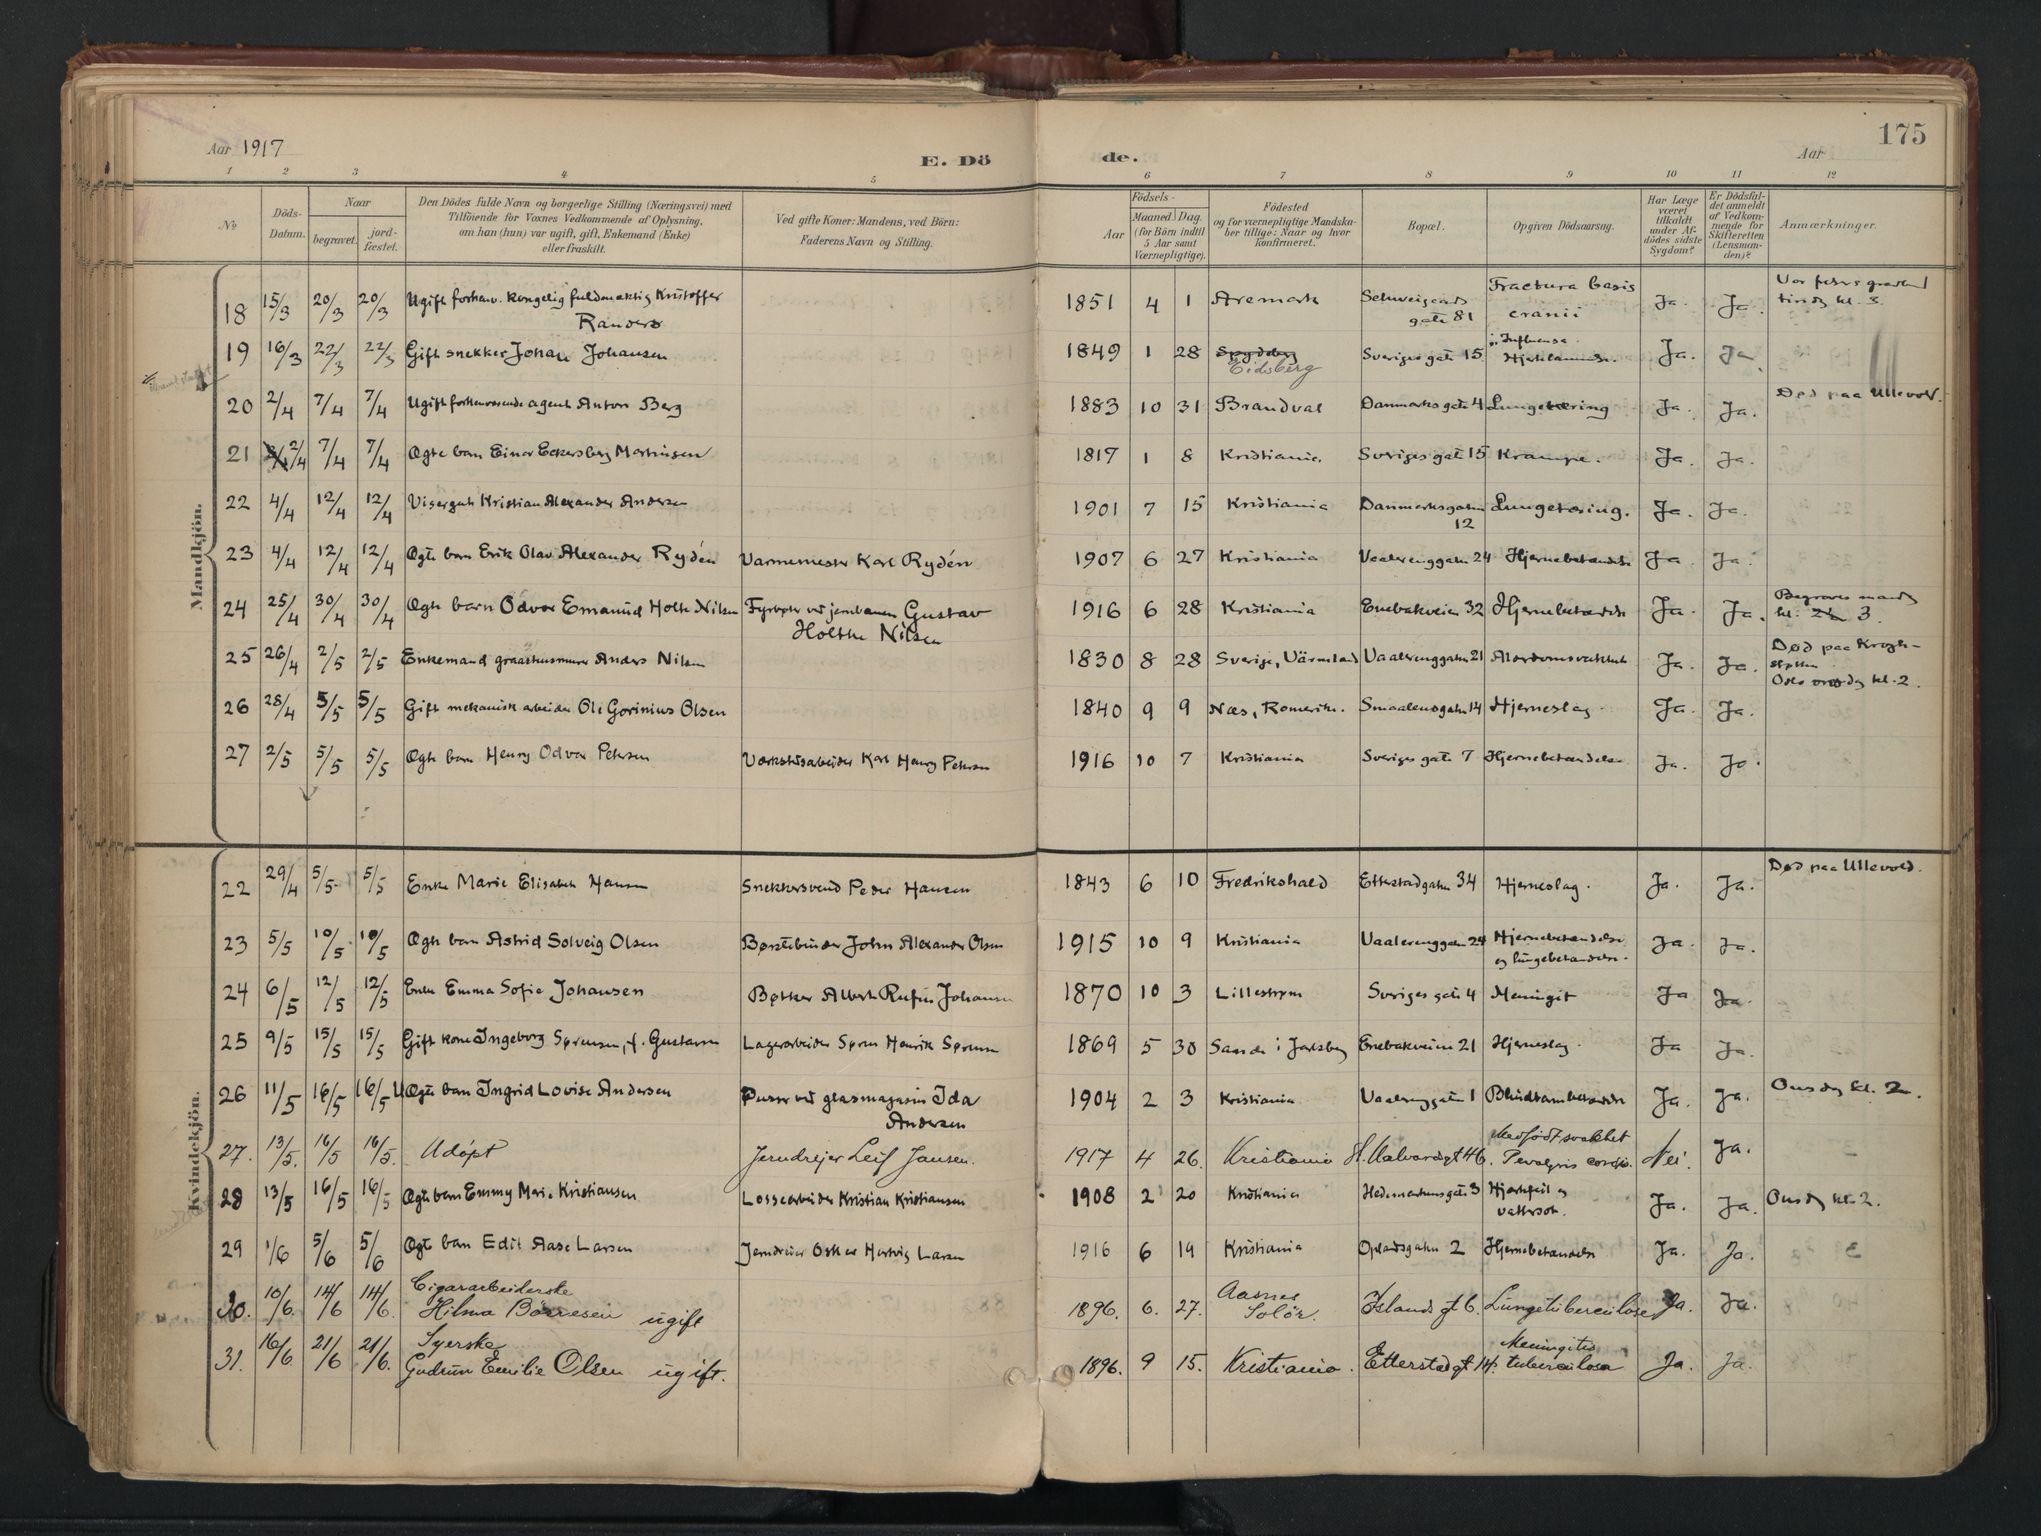 175
Aar 1917
E. Dö
de.
Aar
1 2 3 4 5 6 7 8 9 10 11 12
No
Döds-
Datum.
Naar
begravet.
jord-
fæstet.
Den Dödes fulde Navn og borgerlige Stilling (Næringsvei) med
Tilföiende for Voxnes Vedkommende af Oplysning,
om han (hun) var ugift, gift, Enkemand (Enke)
eller fraskilt.
Ved gifte Koner: Mandens, ved Börn:
Faderens Navn og Stilling.
Födsels-
Aar
Maaned. Dag.
(for Börn indtil
5 Aar samt
Værnepligtige).
Födested
og for værnepligtige Mandska-
ber tillige: Naar og hvor
konfirmeret.
Bopæl.
Opgiven Dödsaarsag.
Har Læge
været
tilkaldt
under Af-
dödes sidste
Sygdom?
Er Dödsfal-
det anmeldt
af Vedkom-
mende for
Skifteretten
(Lensman-
den)?
Anmærkninger.
Mandkjön.
18 15/3 20/3 20/3 Ugift forhenv. kongelig fuldmæktig Kristoffer
Randers
1851 4 1 Aremark Schweigaards
gate 81 Fractura basis
cranii Ja. Ja.
kl. 3.
19 16/3 22/3 22/3 Gift snekker Johan Johansen 1849 1 28 Spydeberg
Eidsberg Sveriges gate 15 Influensa.
Ja. Ja
20 2/4 7/4 7/4 Ugift forhenværende agent Anton Berg 1883 10 31 Brandval Danmarks gate 4 Lungetæring Ja. Ja. Død paa Ullevold.
21 2/4 7/4 7/4 Ægte barn Einar Eckersberg Martinsen 1817 1 8 Kristiania. Sveriges gate 15 Krampe. Ja. Ja.
22 4/4 12/4 12/4 Visergut Kristian Alexander Andersen 1901 7 15 Kristiania Danmarksgaten
12 Lungetæring. Ja. Ja.
23 4/4 12/4 12/4 Ægte barn Erik Olav Alexander Rydén Varmemester Karl Rydén 1907 6 27 Kristiania Vaalerenggaten 24 Hjernebetændelse Ja Ja.
24 25/4 30/4 30/4 Ægte barn Odvar Emanuel Holth Nilsen Fyrbøter ved jernbanen Gustav
Holthe Nilsen
1916 6 28 Kristiania Enebakveien 32 Hjernebetændelse Ja. Ja. Begraves mandag
kl. 3.
25 26/4 2/5 2/5 Enkemand Anders Nilsen 1830 8 28 Sverige, Värmland Vaalerenggaten 21 Alderdomssvakhet Ja. Ja. Død paa Krogh-
støtten
Oslo onsdag kl. 2.
26 28/4 5/5 5/5 Gift mekanisk arbeider Ole Gorinius Olsen 1840 9 9 Næs, Romerike. Smaalensgaten 14 Hjerneslag. Ja. Ja.
27 2/5 5/5 5/5 Ægte barn Henry Odvar Petersen Verkstedsarbeider Karl Henry Petersen 1916 10 7 Kristiania Sveriges gate 7 Hjernebetændelse Ja. Ja.
Kvindekjön.
22 29/4 5/5 5/5 Enke Marie Elisabeth Hansen Snekkersvend Peder Hansen 1843 6 10 Fredrikshald Etterstadgaten 34 Hjerneslag. Ja. Ja. Død paa Ullevold.
23 5/5 10/5 10/5 Ægte barn Astrid Solveig Olsen Børstebinder John Alexander Olsen 1915 10 9 Kristiania Vaalerenggaten 24 Hjernebetændelse
og lungebetændelse. Ja. Ja.
24 6/5 12/5 12/5 Enke Emma Sofie Johansen Bøtker Albert Rufus Johansen 1870 10 3 Lillestrøm Sveriges gate 4 Meningit Ja Ja.
25 9/5 15/5 15/5 Gift kone Ingeborg Sørensen, f. Gustavsen Lagerarbeider Søren Henrik Sørensen 1869 5 30 Sande i Jarlsberg Enebakveien 21 Hjerneslag. Ja Ja.
26 11/5 16/5 16/5 Uægte barn Ingrid Lovise Andersen Pusser ved glasmagasin Ida
Andersen
1904 2 3 Kristiania Vaalerenggaten 1 Blindtarmbetændelse Ja. Ja. Onsdag kl. 2.
27. 13/5. 16/5 16/5. Udøpt Jerndrejer Leif Jansen. 1917 4 26. Kristiania H. Halvardsgt 46. Medfödt svakhet
Nei. Ja.
28 13/5 16/5 16/5 Ægte barn Emmy Marie Kristiansen Lossearbeider Kristian Kristiansen 1908 2 20 Kristiania Hedemarkensgate 3 Hjertefeil og
vattersot. Ja. Ja. Onsdag kl. 2.
29 1/6 5/6 5/6 Ægte barn Edit Aase Larsen Jerndreier Oskar Hartvig Larsen 1916 6 19 Kristiania Oplandsgaten 2 Hjernebetændelse Ja. Ja.
30. 10/6. 14/6 14/6. Cigararbeiderske
Hilma Börresen ugift
1896. 6. 27. Aasnes
Solör. Islands gt 6. Lungetuberculose Ja. Ja.
31. 16/6 21/6 21/6. Syerske
Gudrun Emilie Olsen ugift.
1896. 9 15. Kristiania. Etterstadgt 14. Meningitis
tuberculosa Ja. Ja.